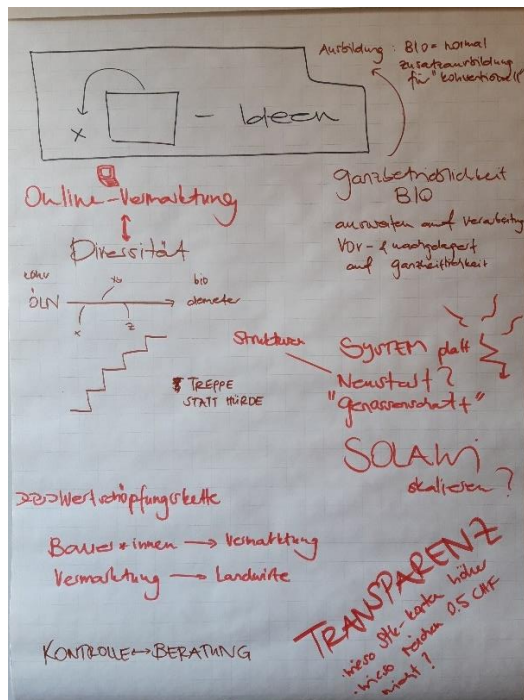 x
- Ideen
Ausbildung : BIO = normal
Zusatzausbildung
für "konventionell"
Online-Vermarktung
Diversität
konv
ÖLN
bio
x
z
TREPPE
STATT HÜRDE
Ganzbetrieblichkeit
BIO
ausweiten auf Verarbeitung
Vor- & nachgelagert
auf ganzheitlichkeit
Strukturen
SYSTEM platt
Neustart?
"Genossenschaft"
SOLAWi
skalieren?
Wertschöpfungskette
Bauer*innen → Vermarktung
Vermarktung → Landwirte
TRANSPARENZ
• wieso höher
• wieso reichen 0.5 CHF
nicht?
KONTROLLE ↔ BERATUNG